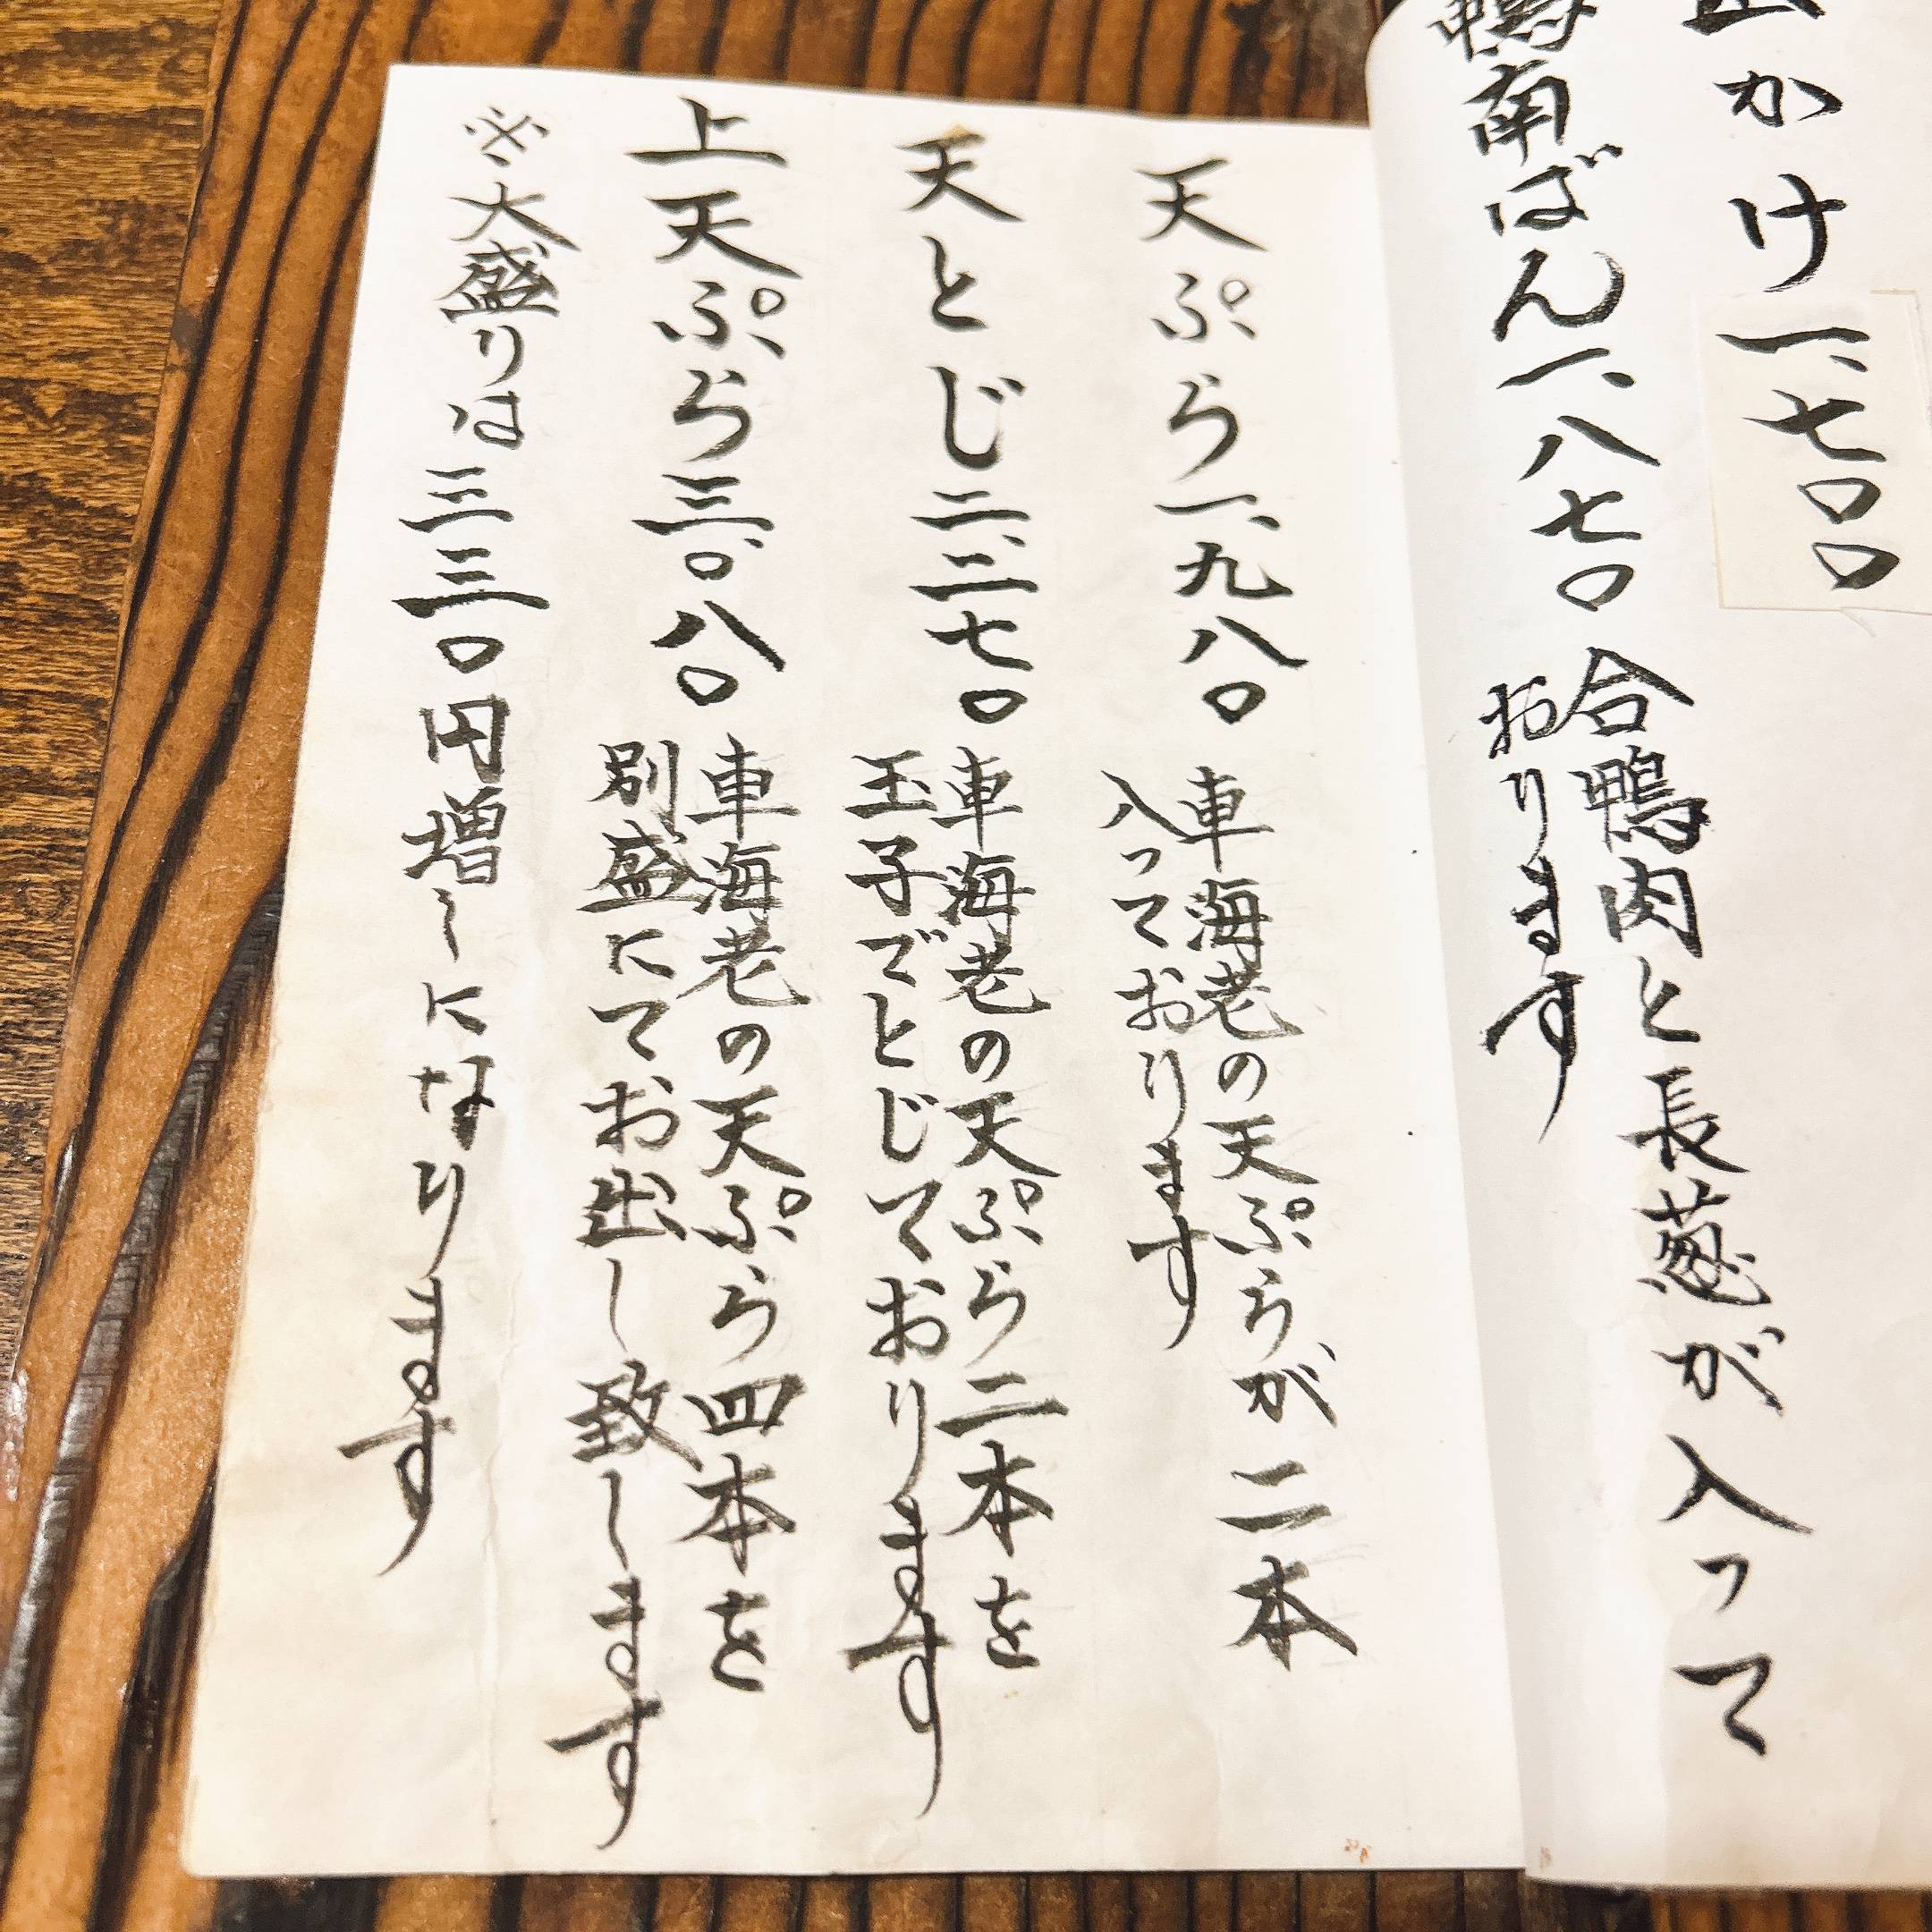 かけ 一、七〇〇
鴨南ばん 一、八七〇
合鴨肉と長葱が入って
おります
天ぷら 一、九八〇
車海老の天ぷらが二本
入っております
天とじ 二、二七〇
車海老の天ぷら二本を
玉子でとじております
上天ぷら 三、〇八〇
車海老の天ぷら四本を
別盛にてお出し致します
※大盛りは三三〇円増しになります